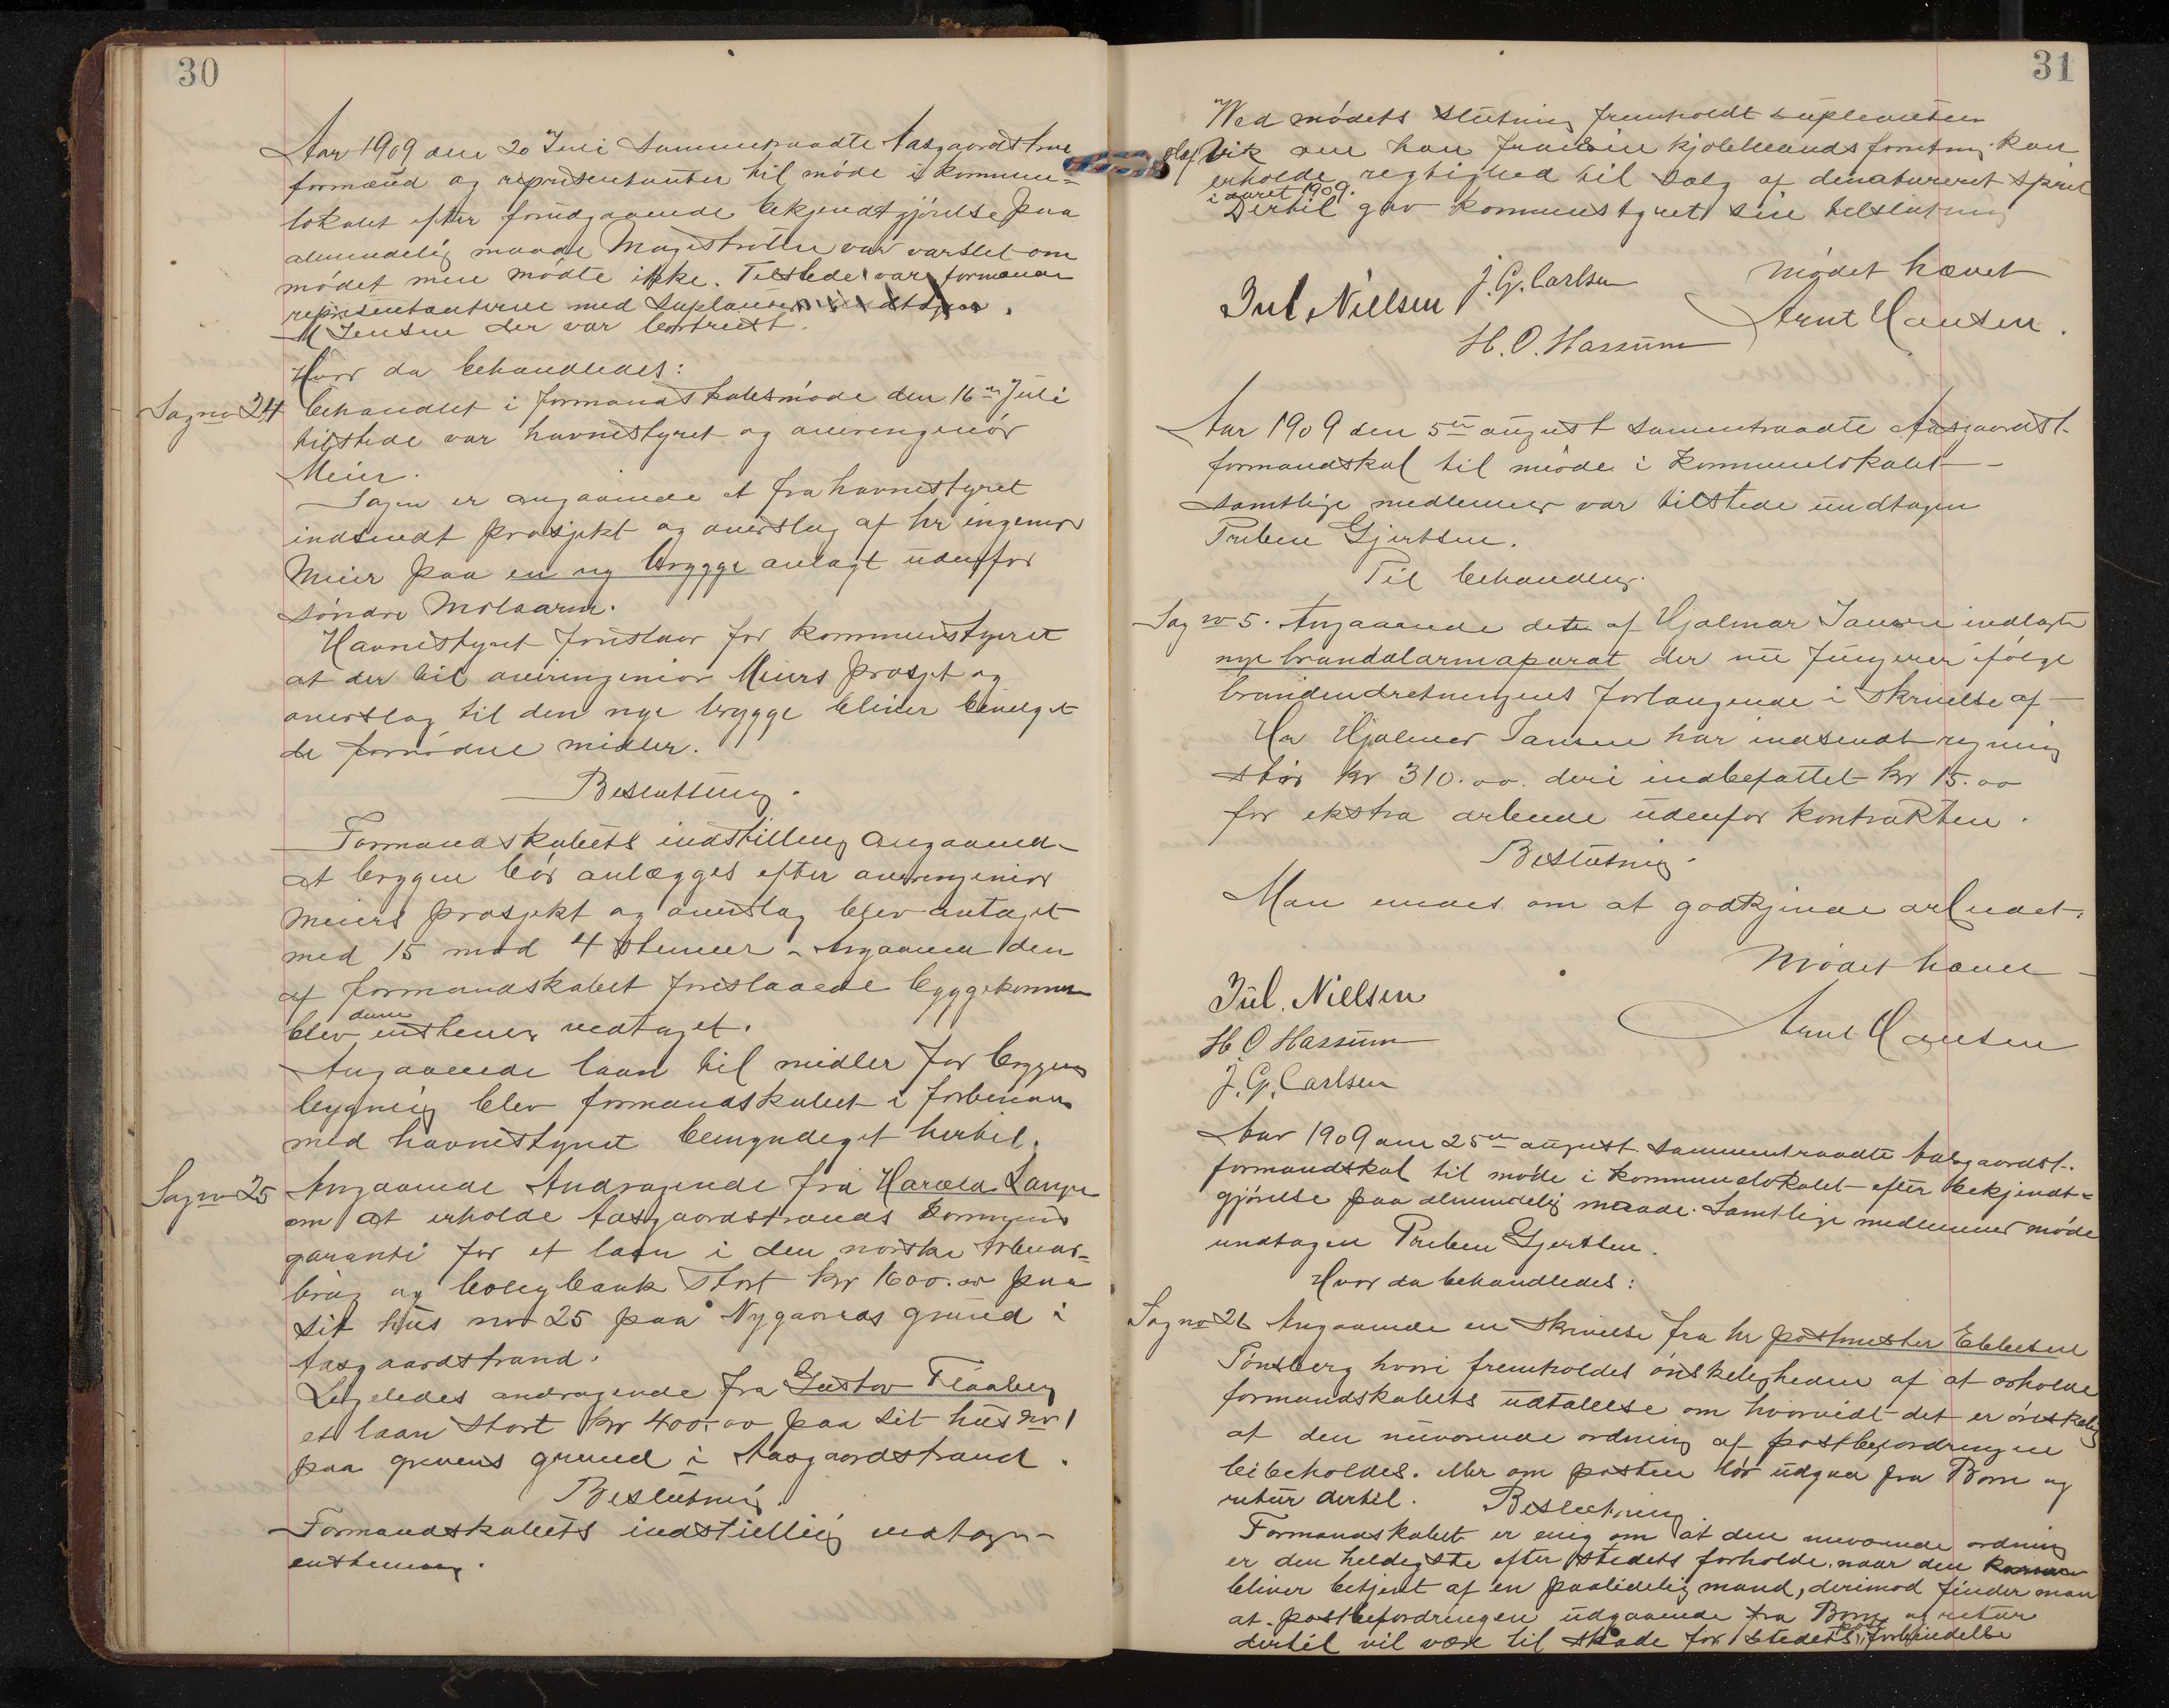 30
Aar 1909 den 20 Juli sammentraadte Aasgaardstrand
formænd og repræsentanter til møde i kommune-
lokalet efter forudgaaende bekjendtgjørelse paa
almindelig maade Magistraten var varslet om
mødet men mødte ikke. Tilstede var formænd
repræsentanterne med Suplanter
M Jensen der var bortreist.
Hvor da behandledes:
Sag no 24 behandlet i formandskabsmøde den 16de Juli
tilstede var havnestyret og overingeniør
Meier.
Sagen er angaaende et fra havnestyret
indsendt prosjekt og overslag af hr ingeniør
Meier paa en ny brygge anlagt udenfor
søndre Moloarm.
Havnestyret foreslaar for kommunestyret
at der til overingeniør Meiers prosjet og
overslag til den nye brygge bliver bevilget
de fornødne midler.
Beslutning.
Formandskabets indstilling angaaende
at bryggen bør anlægges efter overingeniør
Meiers prosjekt og overslag blev antaget
med 15 mod 4 stemmer. Angaaende den
af formandskabet foreslaaede byggekomm
denne
blev enstemig vedtaget.
Angaaende laan til midler for bryggens
bygning blev formandskabet i forbindelse
med havnestyret bemyndiget hertil.
Sag no 25 Angaaende Andragende fra Harald Lange
om at erholde Aasgaardstrands kommunes
garanti for et laan i den norske Arbeider-
brug og boligbank stort kr 1600.00 paa
sit hus no 25 paa Nygaards grund i
Aasgaardstrand.
Ligeledes andragende fra Gustav Flaaberg
et laan stort kr 400.00 paa sit hus no 1
paa grevens grund i Aasgaardstrand.
Beslutning.
Formandskabets indstilling vedtages
enstemig.
31
Ved mødets slutning fremholdt suplanten
Olaf Vik om han fra sin kjøbmandsforretning kan
erholde regtighed til salg af denatureret sprit
i aaret 1909.
Dertil gav kommunestyret sin tilslutning
Mødet hævet
Jul. Nielsen J. G. Carlsen Arnt Hansen.
H. O. Hassum
Aar 1909 den 5te august sammentraadte Aasgaardst.
formandskab til møde i Kommunelokalet
samtlige medlemmer var tilstede undtagen
Preben Gjertsen.
Til behandling.
Sag no 5. Angaaende dete af Hjalmar Jansen indlagte
nye brandalarmaparat der nu fungerer ifølge
brandindretningens forlangende i skrivelse af
Hr Hjalmar Jansen har indsendt regning
stor kr 310.00 deri indbefattet kr 15.00
for ekstra arbeide udenfor kontrakten.
Beslutning.
Man enedes om at godkjende arbeidet.
Mødet hævet
Jul. Nielsen
H. O Hassum Arnt Hansen
J. G. Carlsen
Aar 1909 den 25de august sammentraadte Aasgaardst.
formandskab til møde i kommunelokalet efter bekjendt-
gjørelse paa almindelig maade. Samtlige medlemmer møde
undtagen Preben Gjertsen.
Hvor da behandledes:
Sag no 26 Angaaende en skrivelse fra hr postmester Ebbesen
Tønsberg hvori fremholdes ønskeligheden af at erholde
formandskabets udtallelse om hvorvidt det er ønskelig
at den nuværende ordning af postbefordringen
bibeholdes. Eller om posten bør udgaa fra Borre og
retur dertil. Beslutning
Formandskabet er enig om at den nuværende ordning
er den heldigste efter stedets forholde. naar den
bliver betjent af en paalidelig mand, derimod finder man
at postbefordringen udgaaende fra Borre og retur
post
dertil vil være til skade for stedets forbindelse